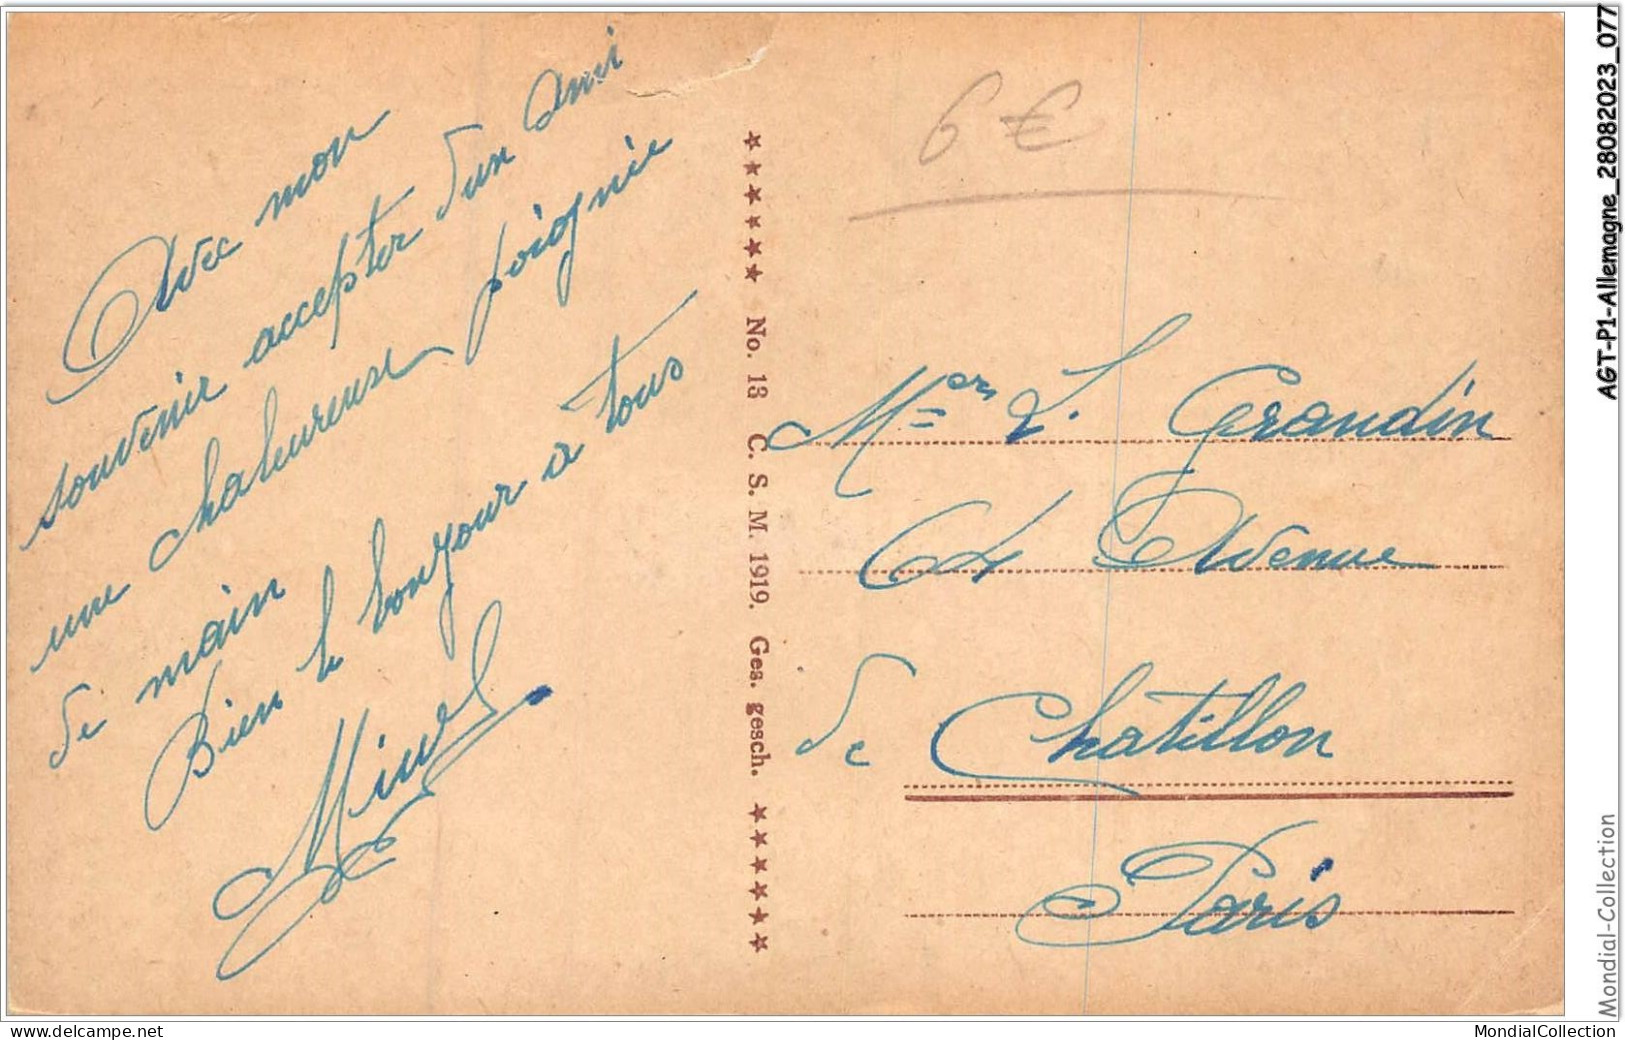 Avec mon
souvenir accepter d'un ami
une chaleureuse poignée
de main
Bien le bonjour à tous
6 €
★★★★★★ No. 13 C. S. M. 1919. Ges. gesch. ★★★★★★
L. Grandin
Avenue
de Châtillon
Paris
AGT-P1-Allemagne_28082023_077
Mondial-Collection
www.delcampe.net
MondialCollection